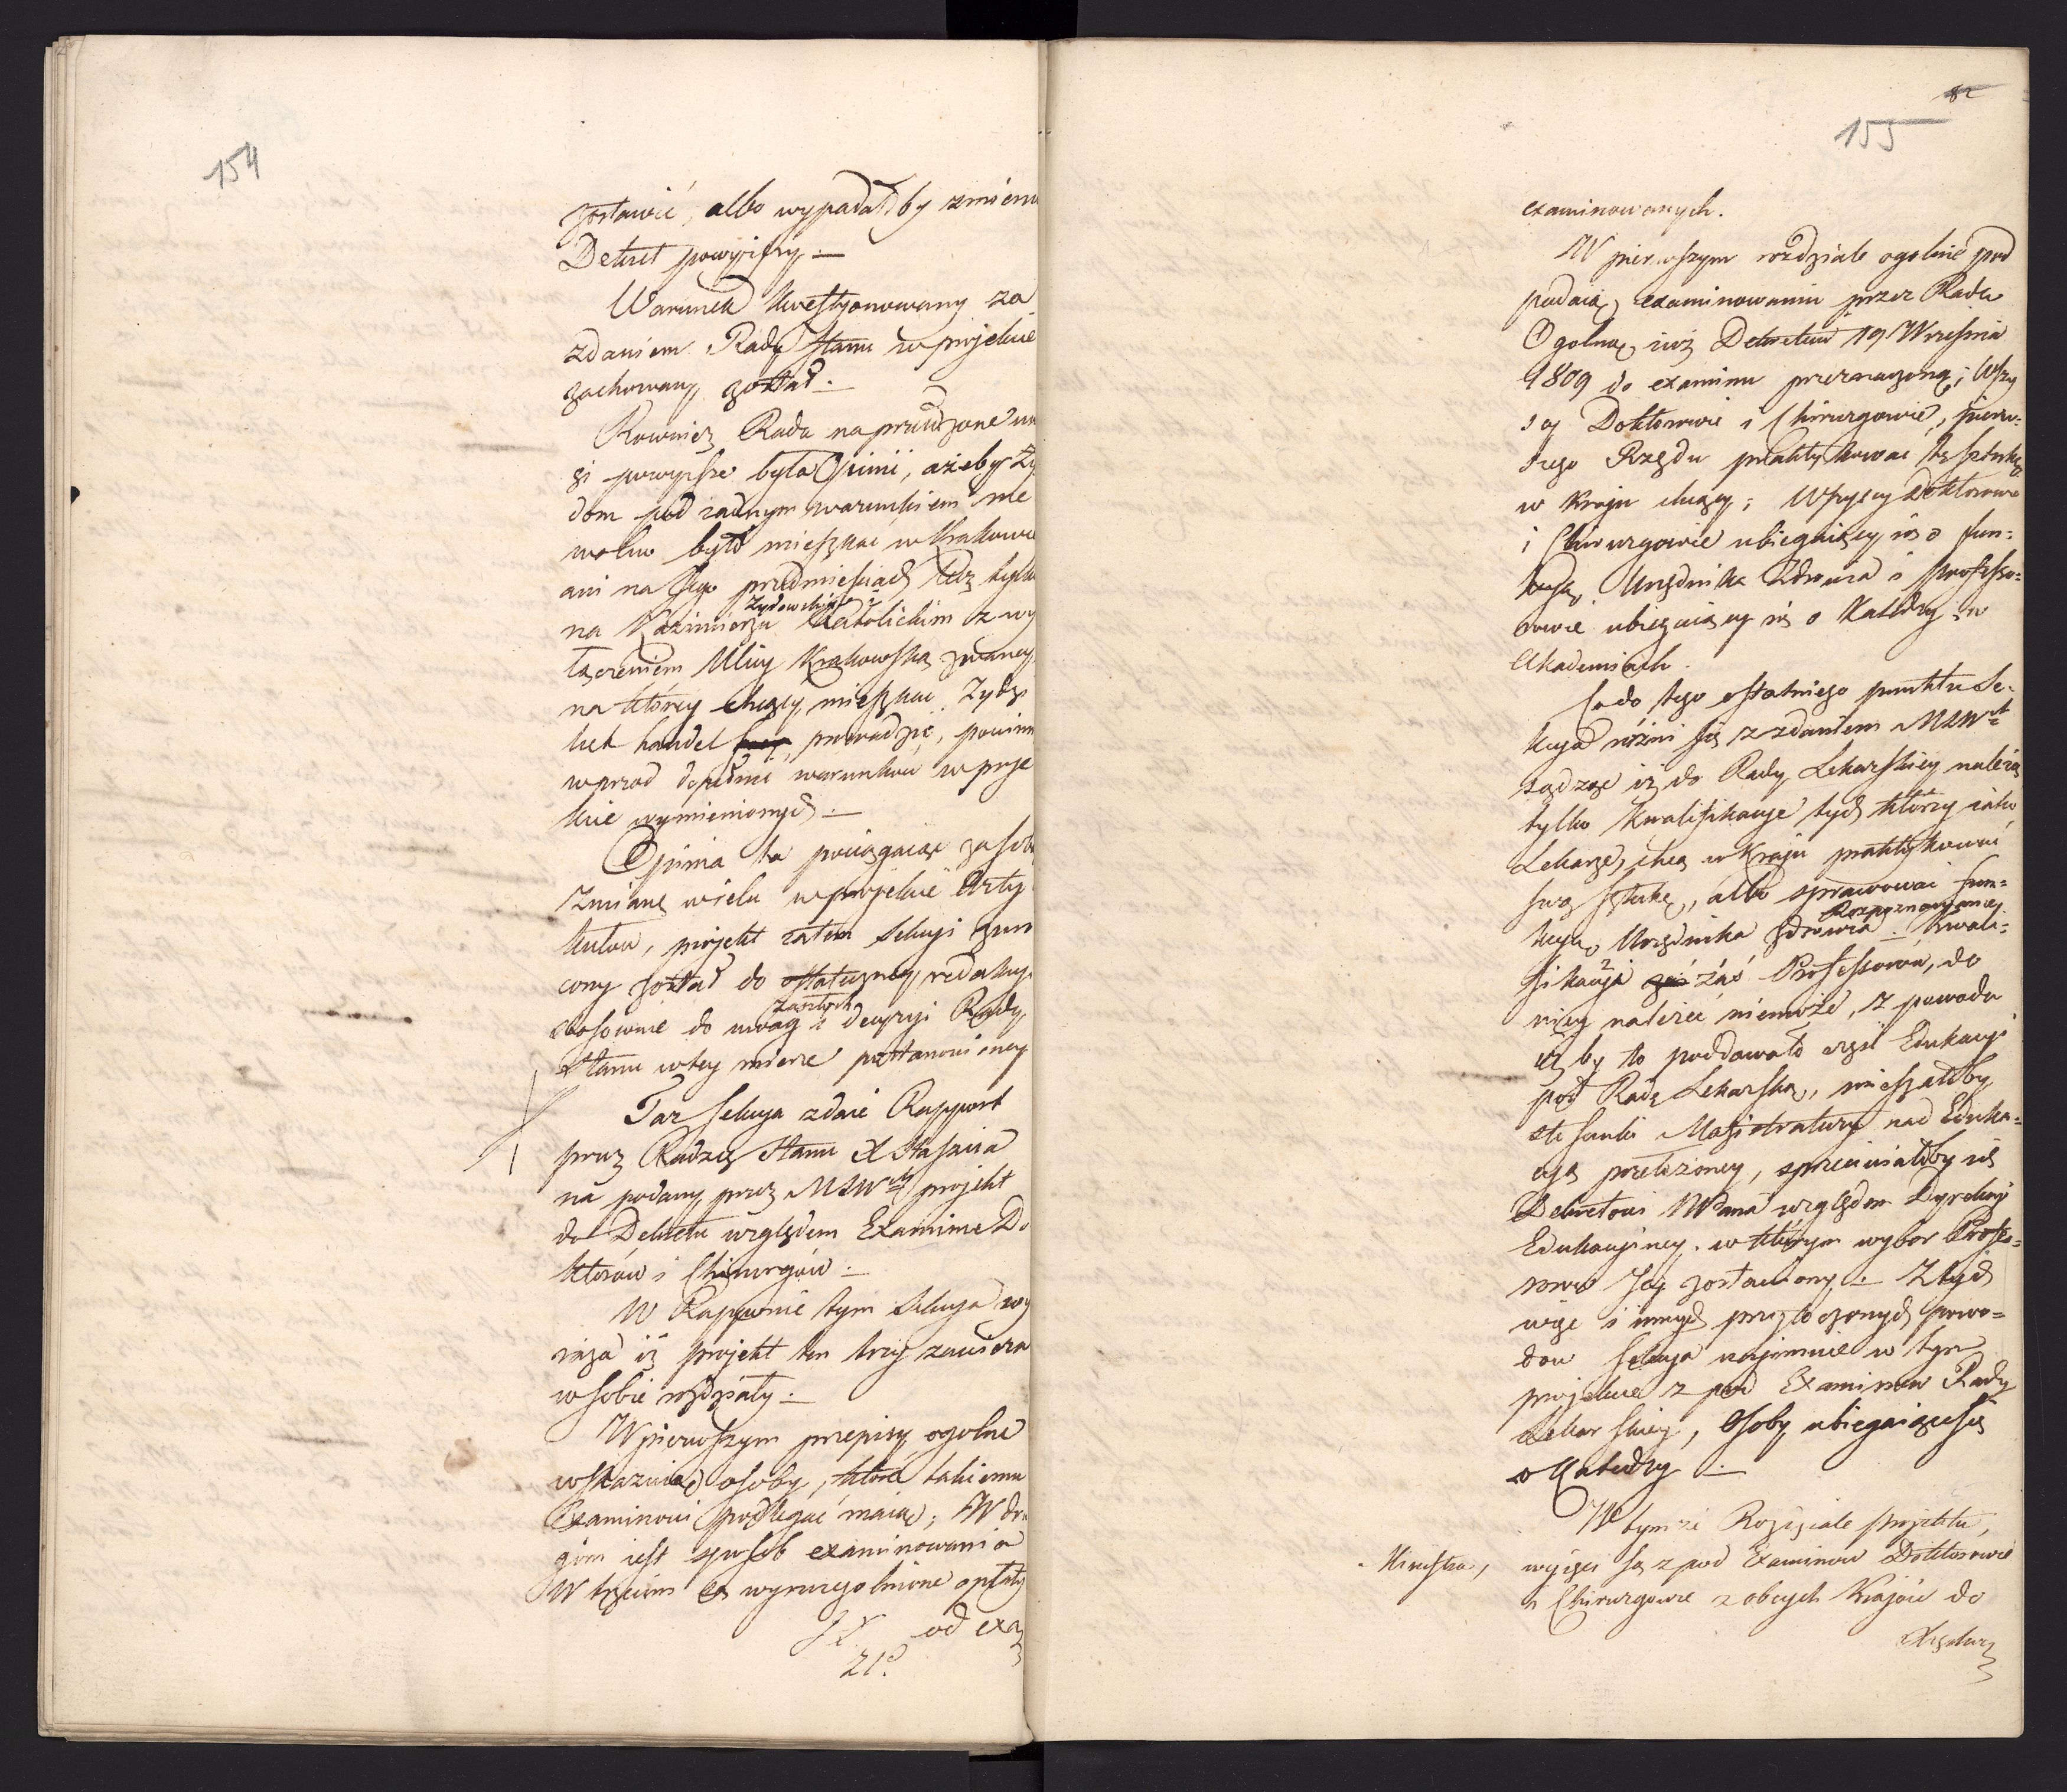 154
zostawić, albo wypadałoby zmienić
Dekret powyższy. —
Warunek kwestyonowany za
zdaniem Rady Stanu w projekcie
zachowany został. —
Rownież Rada na przewodzone uwa
gi powyższe była Opinii, ażeby Ży
dom pod żadnym warunkiem nie
wolno było mieszkać w Krakowie
ani na Jego przedmieściach lecz tylko
Żydowskim i
na Kazimierzu Katolickim z wy
łączeniem Ulicy Krakowską zwaney
na którey chcący mieszkać Żydzi
lub handel prowadzić, powinni
wprzod dopełnić warunków w proje
kcie wymienionych. —
Opinia ta pociągaiąc za sobą
zmianę wielu w projekcie Arty
kułow, projekt zatem Sekcyi zwró
cony został do ostateczney redakcyi
zaszłych
stosownie do uwag i decyzyi Rady
Stanu w tey mierze postanowioney
Taż Sekcya zdaie Rapport
przez Radzcę Stanu X Staszica
na podany przez MSWth projekt
do Dekretu względem Examinu Do
ktorów i Chirurgów. —
W Rapporcie tym Sekcya wy
raża iż projekt ten trzy zawiera
w sobie rozdziały. —
W pierwszym przepisy ogolne
wskazuiące osoby, które takiemu
Examinowi podlegać maią; W dru
gim iest sposób examinowania
W trzecim są wyszczególnione opłaty
od exa
21.
82
155
examinowanych.
W pierwszym rozdziale ogolnie pod
padaią examinowaniu przez Radę
Ogolną iuż Dekretem 19 Września
1809 do examinu przeznaczoną; Wszy
scy Doktorowie i Chirurgowie, pierw=
szego Rzędu praktykować tę sztukę
w kraju chcący; Wszyscy Doktorowie
i Chirurgowie ubiegaiący się o fun=
kcyą Urzędnika Zdrowia i professo=
rowie ubiegaiący się o Katedry w
Akademiach.
Co do tego ostatniego punktu Se=
kcya różni się z zdaniem MSWth
sądząc iż do Rady Lekarskiey należą
tylko kwalifikacye tych którzy iako
Lekarze, chcą w Kraju praktykować
swą sztukę, albo sprawować fun=
Rozpoznawanie
kcyą Urzędnika zdrowia. kwali=
fikacyi zaś Professorów, do
niey należeć niemoże, z powodu
iż by to poddawało część Edukacyi
pod Radę Lekarską, mieszałoby
stosunki Magistratury nad Eduka=
cyą przełożoney, sprzeciwiałoby się
Dekretowi WPana względem Dyrekcyi
Edukacyiney. w którym wybor Profes=
sorów Jey zostawiony. — Z tych
więc i innych przytoczonych powo=
dow Sekcya uymuie w tym
projekcie z pod Examinow Rady
Lekarskiey, Osoby ubiegaiące się
o Katedry. —
W tymże Rozdziale projektu,
Ministra, wyjęci są z pod Examinow Doktorowie
i Chirurgowie z obcych Krajów do